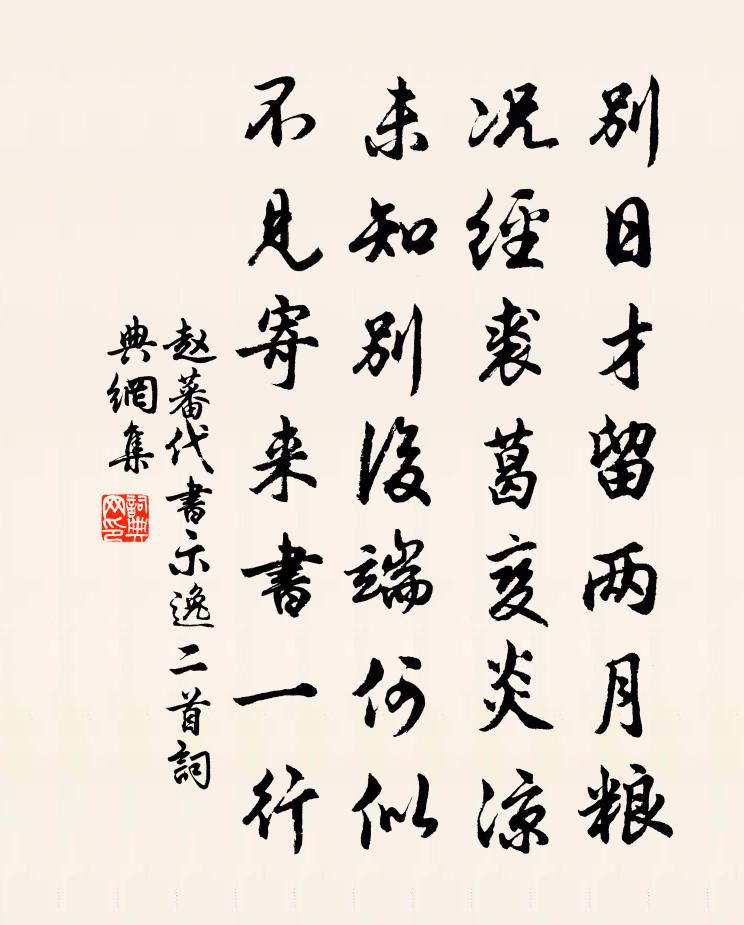 別日才留两月粮
况經裘葛变炎涼
未知別後端何似
不見寄来書一行
赵蕃代書示逸二首詞
典網集
詞典
网印